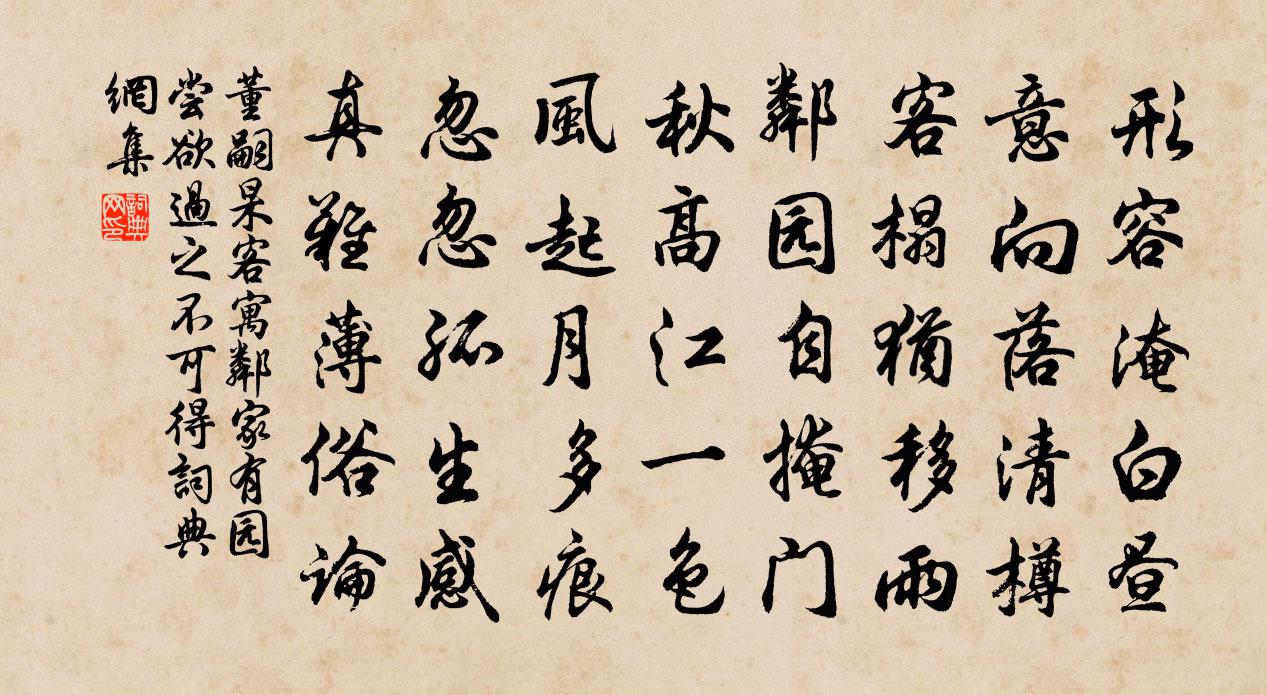 形容淹白昼
意向落清樽
客榻猶移雨
鄰园自掩门
秋高江一色
風起月多痕
忽忽孤生感
真難薄俗論
董嗣杲客寓鄰家有园
嘗欲過之不可得詞典
網集
詞典网印